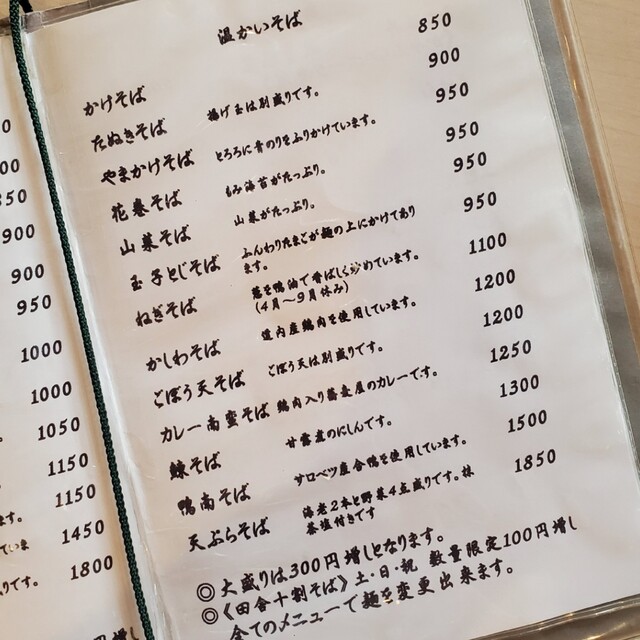 温かいそば
かけそば 850
たぬきそば 揚げ玉は別盛りです。 900
やまかけそば とろろに青のりをふりかけています。 950
花巻そば もみ海苔がたっぷり。 950
山菜そば 山菜がたっぷり。 950
玉子とじそば ふんわりたまごが麺の上にかけてあり
ます。 950
ねぎそば 葱を鴨油で香ばしく炒めています。
(4月～9月休み) 1100
かしわそば 道内産鶏肉を使用しています。 1200
ごぼう天そば ごぼう天は別盛りです。 1200
カレー南蛮そば 鶏肉入り蕎麦屋のカレーです。 1250
鰊そば 甘露煮のにしんです。 1300
鴨南そば サロベツ産合鴨を使用しています。 1500
天ぷらそば 海老2本と野菜4点盛りです。抹
茶塩付きです 1850
◎大盛りは300円増しとなります。
◎《田舎十割そば》土・日・祝 数量限定100円増し
全てのメニューで麺を変更出来ます。
900
900
950
1000
1000
1050
1150
1150
ます。
1450
ていま
りです。
1800
円増し